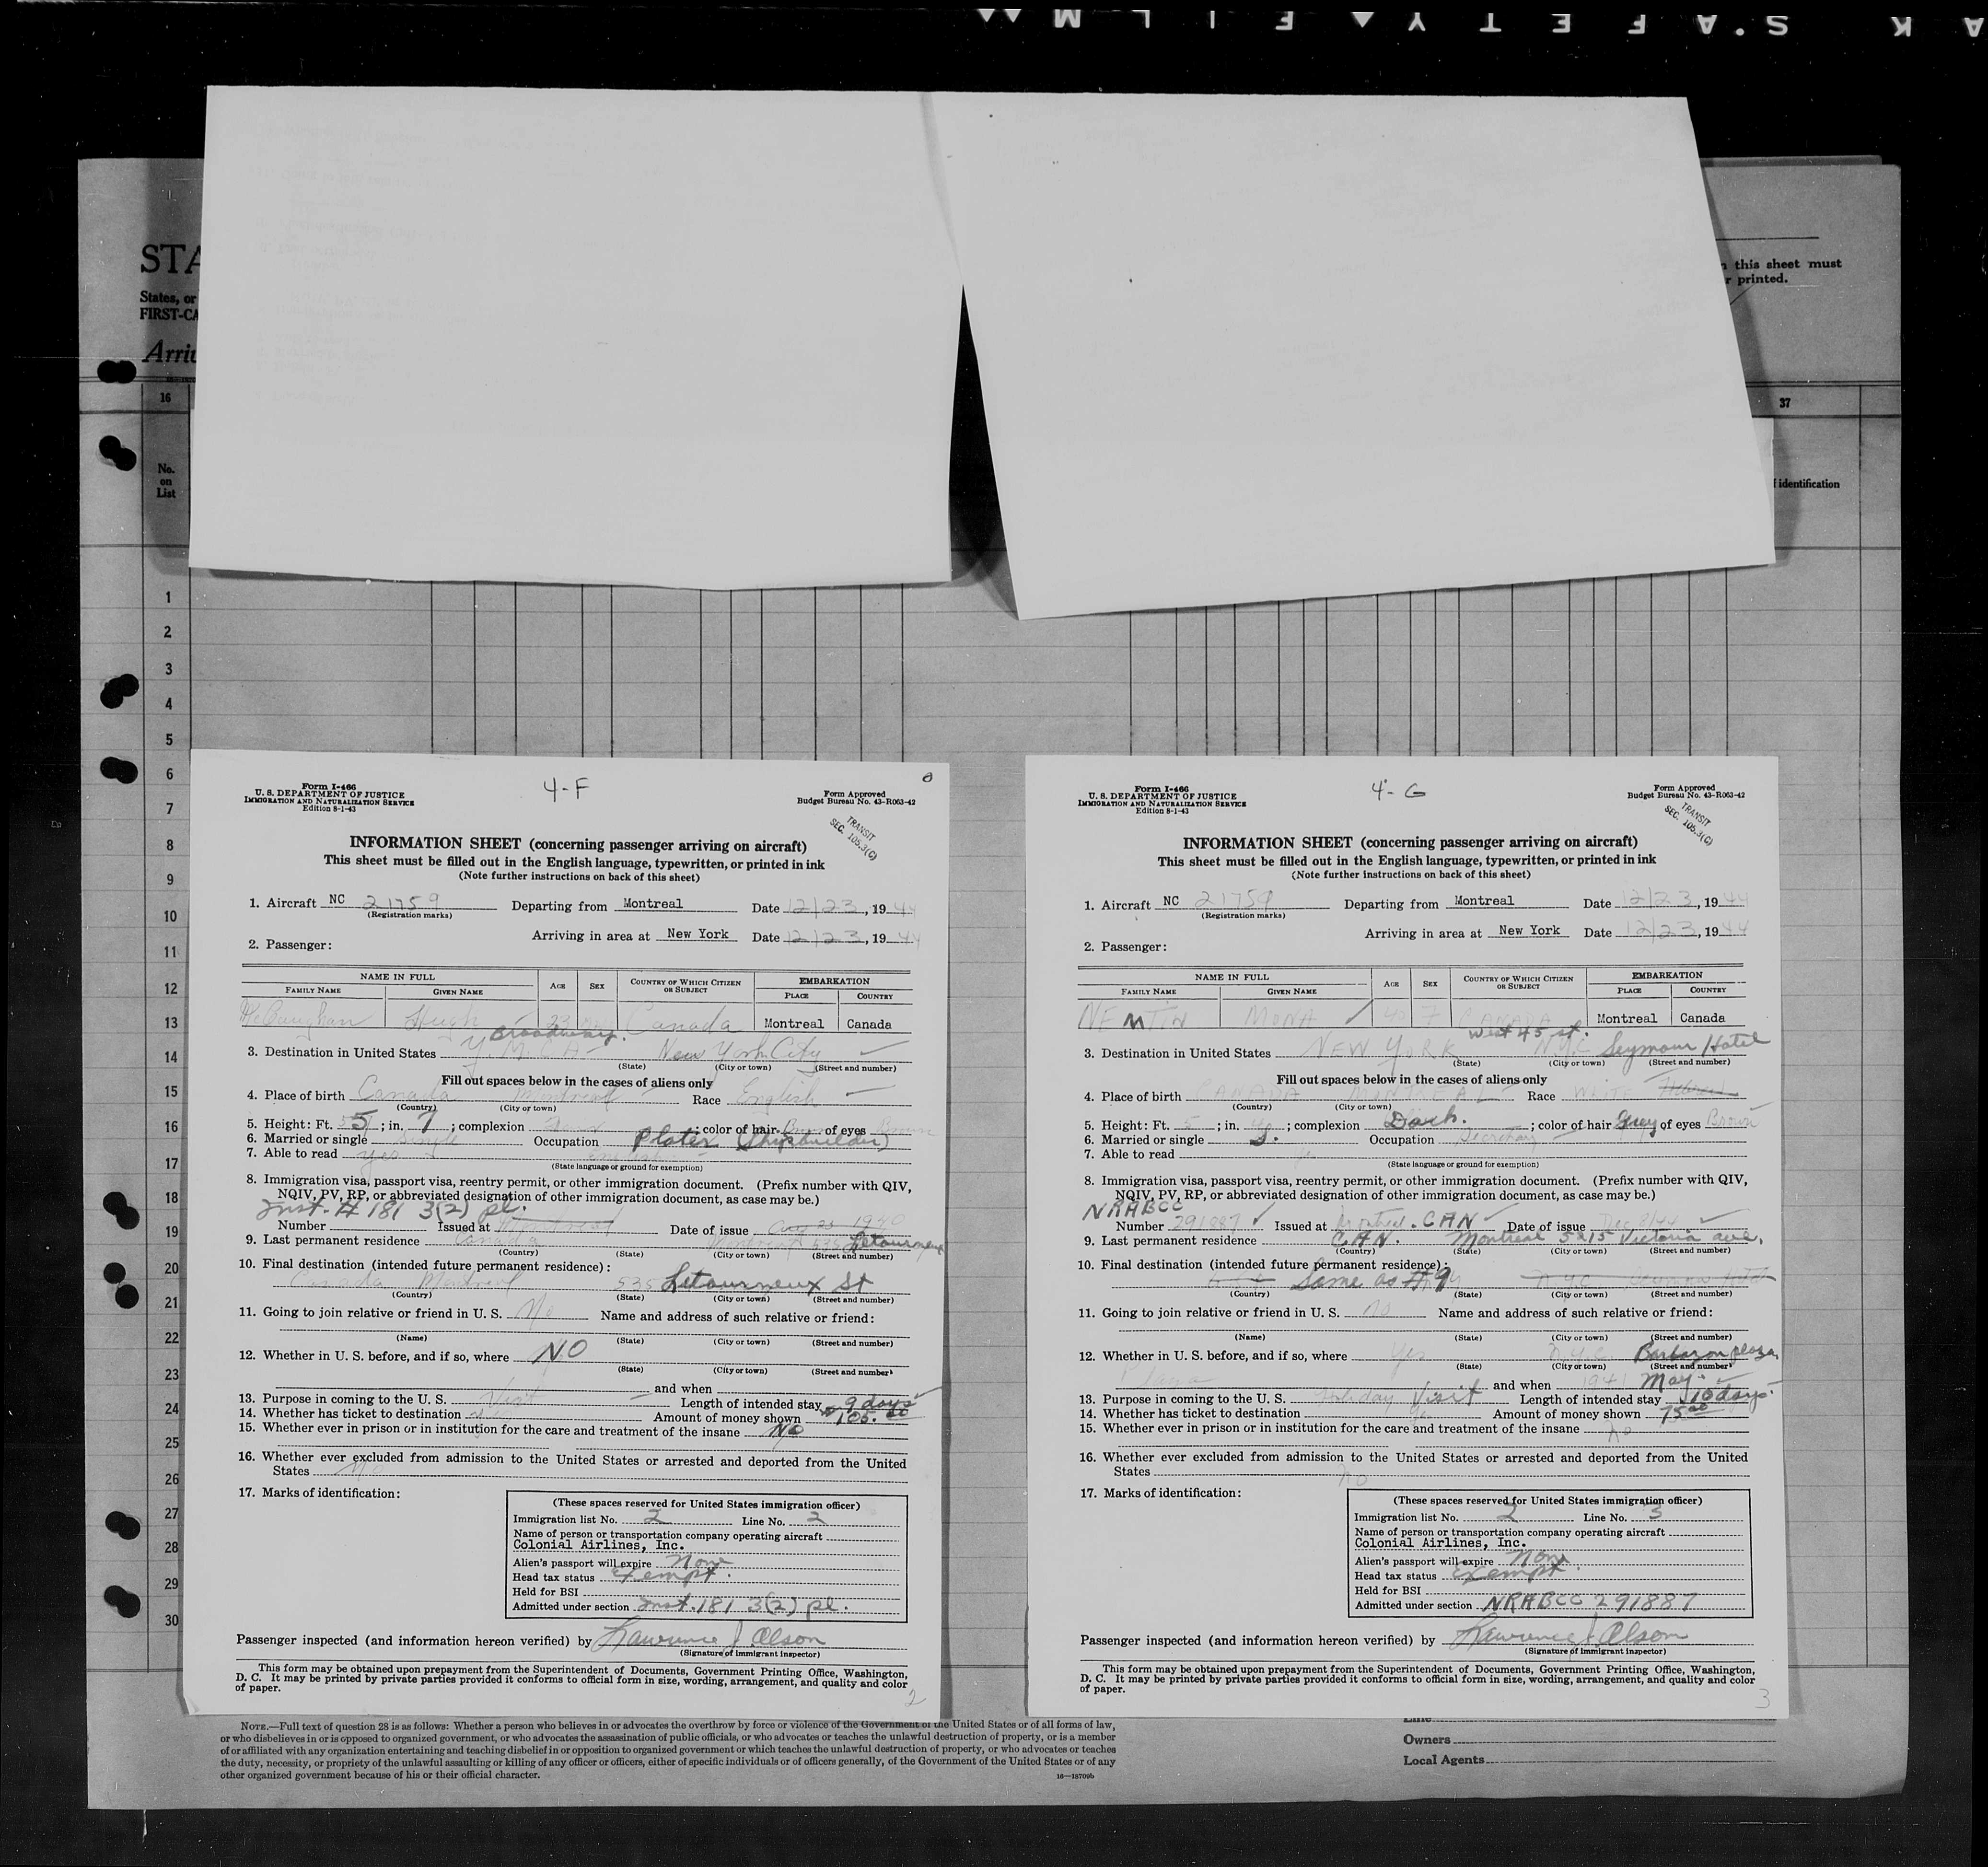 K S.AFETY FILM
STA
States, or
FIRST-CA
Arri
this sheet must
printed.
16
37
No.
on
List
identification
1
2
3
4
5
6
7
8
9
10
11
12
13
14
15
16
17
18
19
20
21
22
23
24
25
26
27
28
29
30
Form I-466
U. S. DEPARTMENT OF JUSTICE
IMMIGRATION AND NATURALIZATION SERVICE
Edition 8-1-43
4-F
Form Approved
Budget Bureau No. 43-R063-42
TRANSIT
SEC. 105.3(C)
INFORMATION SHEET (concerning passenger arriving on aircraft)
This sheet must be filled out in the English language, typewritten, or printed in ink
(Note further instructions on back of this sheet)
1. Aircraft NC 21759 Departing from Montreal Date 12/23, 1944
(Registration marks)
Arriving in area at New York Date 12/23, 1944
2. Passenger:
NAME IN FULL AGE SEX COUNTRY OF WHICH CITIZEN OR SUBJECT EMBARKATION
FAMILY NAME GIVEN NAME PLACE COUNTRY
McGaughan Hugh 23 Canada Montreal Canada
Broadway.
3. Destination in United States Y.M.C.A. New York City
(State) (City or town) (Street and number)
Fill out spaces below in the cases of aliens only
4. Place of birth Canada Montreal Race English
(Country) (City or town)
5. Height: Ft. 5; in. 7; complexion ; color of hair of eyes Brown
6. Married or single Single Occupation Plater (Shipbuilder)
7. Able to read yes English
(State language or ground for exemption)
8. Immigration visa, passport visa, reentry permit, or other immigration document. (Prefix number with QIV,
NQIV, PV, RP, or abbreviated designation of other immigration document, as case may be.)
Inst. # 181 3(2) pl.
Number Issued at Montreal Date of issue 1940
9. Last permanent residence Canada Montreal 535 Letourneux
(Country) (State) (City or town) (Street and number)
10. Final destination (intended future permanent residence):
Canada Montreal 535 Letourneux St
(Country) (State) (City or town) (Street and number)
11. Going to join relative or friend in U. S. No Name and address of such relative or friend:
(Name) (State) (City or town) (Street and number)
12. Whether in U. S. before, and if so, where NO
(State) (City or town) (Street and number)
and when
13. Purpose in coming to the U. S. Visit Length of intended stay 9 days
14. Whether has ticket to destination Amount of money shown 105.00
15. Whether ever in prison or in institution for the care and treatment of the insane No
16. Whether ever excluded from admission to the United States or arrested and deported from the United
States No
17. Marks of identification:
(These spaces reserved for United States immigration officer)
Immigration list No. 2 Line No. 2
Name of person or transportation company operating aircraft
Colonial Airlines, Inc.
Alien's passport will expire None
Head tax status Exempt.
Held for BSI
Admitted under section Inst. 181 3(2) pl.
Passenger inspected (and information hereon verified) by Lawrence J. Olson
(Signature of immigrant inspector)
This form may be obtained upon prepayment from the Superintendent of Documents, Government Printing Office, Washington,
D. C. It may be printed by private parties provided it conforms to official form in size, wording, arrangement, and quality and color
of paper.
2
Form I-466
U. S. DEPARTMENT OF JUSTICE
IMMIGRATION AND NATURALIZATION SERVICE
Edition 8-1-43
4-G
Form Approved
Budget Bureau No. 43-R063-42
TRANSIT
SEC. 105.3(C)
INFORMATION SHEET (concerning passenger arriving on aircraft)
This sheet must be filled out in the English language, typewritten, or printed in ink
(Note further instructions on back of this sheet)
1. Aircraft NC 21759 Departing from Montreal Date 12/23, 1944
(Registration marks)
Arriving in area at New York Date 12/23, 1944
2. Passenger:
NAME IN FULL AGE SEX COUNTRY OF WHICH CITIZEN OR SUBJECT EMBARKATION
FAMILY NAME GIVEN NAME PLACE COUNTRY
NEMTIN MONA 40 F CANADA Montreal Canada
West 45 st.
3. Destination in United States NEW YORK NYC Seymour Hotel
(State) (City or town) (Street and number)
Fill out spaces below in the cases of aliens only
4. Place of birth CANADA MONTREAL Race WHITE Hebrew
(Country) (City or town)
5. Height: Ft. 5; in. ; complexion Dark.; color of hair Grey of eyes Brown
6. Married or single S. Occupation Secretary
7. Able to read Yes
(State language or ground for exemption)
8. Immigration visa, passport visa, reentry permit, or other immigration document. (Prefix number with QIV,
NQIV, PV, RP, or abbreviated designation of other immigration document, as case may be.)
NRABCC
Number 291887 Issued at Montreal. CAN Date of issue Dec /44
9. Last permanent residence CAN. Montreal 5215 Victoria ave.
(Country) (State) (City or town) (Street and number)
10. Final destination (intended future permanent residence):
Same as #9 NYC Seymour Hotel
(Country) (State) (City or town) (Street and number)
11. Going to join relative or friend in U. S. no Name and address of such relative or friend:
(Name) (State) (City or town) (Street and number)
12. Whether in U. S. before, and if so, where Yes N.Y.C. Barbazon plaza
(State) (City or town) (Street and number)
Plaza and when 1941 May.
13. Purpose in coming to the U. S. Holiday Visit Length of intended stay 10 days.
14. Whether has ticket to destination Amount of money shown 75.00
15. Whether ever in prison or in institution for the care and treatment of the insane no
16. Whether ever excluded from admission to the United States or arrested and deported from the United
States no
17. Marks of identification:
(These spaces reserved for United States immigration officer)
Immigration list No. 2 Line No. 3
Name of person or transportation company operating aircraft
Colonial Airlines, Inc.
Alien's passport will expire None
Head tax status Exempt.
Held for BSI
Admitted under section NRABCC 291887
Passenger inspected (and information hereon verified) by Lawrence J. Olson
(Signature of immigrant inspector)
This form may be obtained upon prepayment from the Superintendent of Documents, Government Printing Office, Washington,
D. C. It may be printed by private parties provided it conforms to official form in size, wording, arrangement, and quality and color
of paper.
3
NOTE.—Full text of question 28 is as follows: Whether a person who believes in or advocates the overthrow by force or violence of the Government of the United States or of all forms of law,
or who disbelieves in or is opposed to organized government, or who advocates the assassination of public officials, or who advocates or teaches the unlawful destruction of property, or is a member
of or affiliated with any organization entertaining and teaching disbelief in or opposition to organized government or which teaches the unlawful destruction of property, or who advocates or teaches
the duty, necessity, or propriety of the unlawful assaulting or killing of any officer or officers, either of specific individuals or of officers generally, of the Government of the United States or of any
other organized government because of his or their official character.
16—18709b
Line
Owners
Local Agents